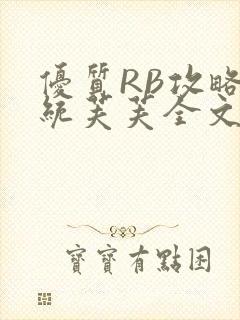 優質RB攻略
統芙芙全文
寶寶有點困